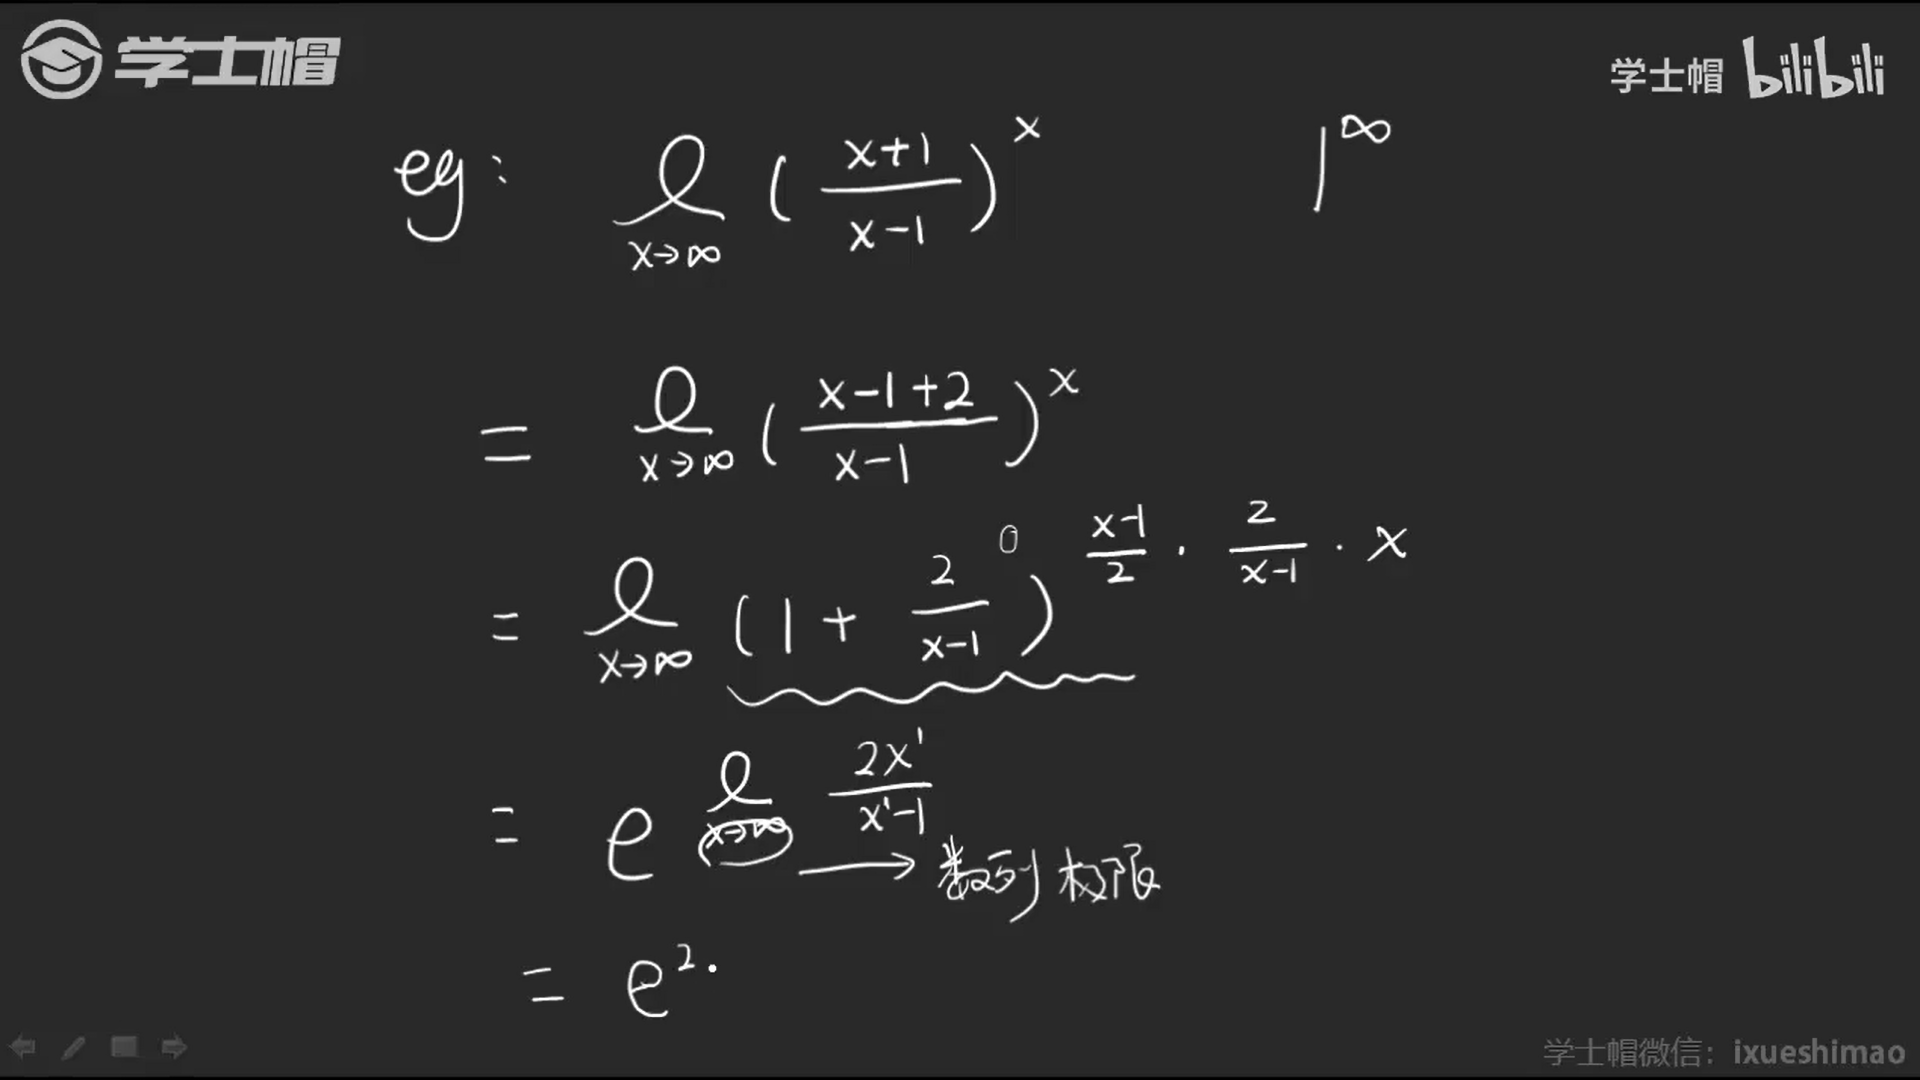 学士帽
学士帽 bilibili
eg: l x→∞ (x+1/x-1)^x 1^∞
= l x→∞ (x-1+2/x-1)^x
= l x→∞ (1+ 2/x-1)^(x-1/2 · 2/x-1 · x)
= e^(l x→∞ 2x^1/x^1-1) → 数列极限
= e^2.
学士帽微信: ixueshimao